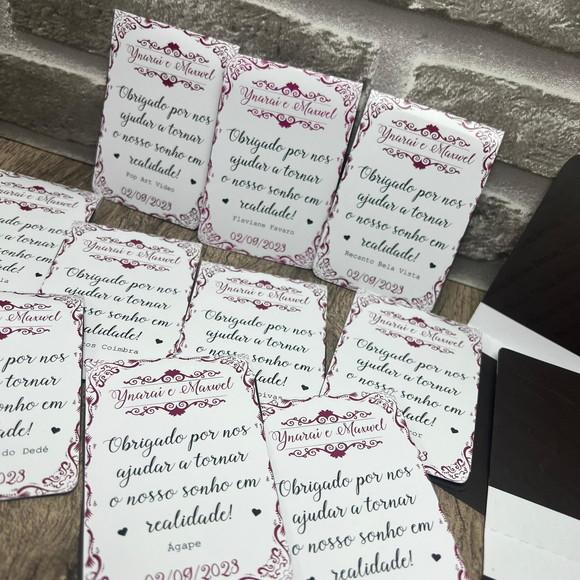 Ynaraí e Maxwel
Obrigado por nos
ajudar a tornar
o nosso sonho em
realidade!
Pop Art Video
02/09/2023
Ynaraí e Maxwel
Obrigado por nos
ajudar a tornar
o nosso sonho em
realidade!
Flaviane Favaro
02/09/2023
Ynaraí e Maxwel
Obrigado por nos
ajudar a tornar
o nosso sonho em
realidade!
Recanto Bela Vista
02/09/2023
Ynaraí e Maxwel
Obrigado por nos
ajudar a tornar
nosso sonho em
Coimbra
Ynaraí e Maxwel
Obrigado por nos
ajudar a tornar
nosso sonho em
Ynaraí e Maxwel
Obrigado por nos
ajudar a tornar
nosso sonho em
realidade!
por nos
tornar
sonho em
do Dedé
Ynaraí e Maxwel
Obrigado por nos
ajudar a tornar
o nosso sonho em
realidade!
Ágape
02/09/2023
Ynaraí e Maxwel
Obrigado por nos
ajudar a tornar
nosso sonho em
realidade!